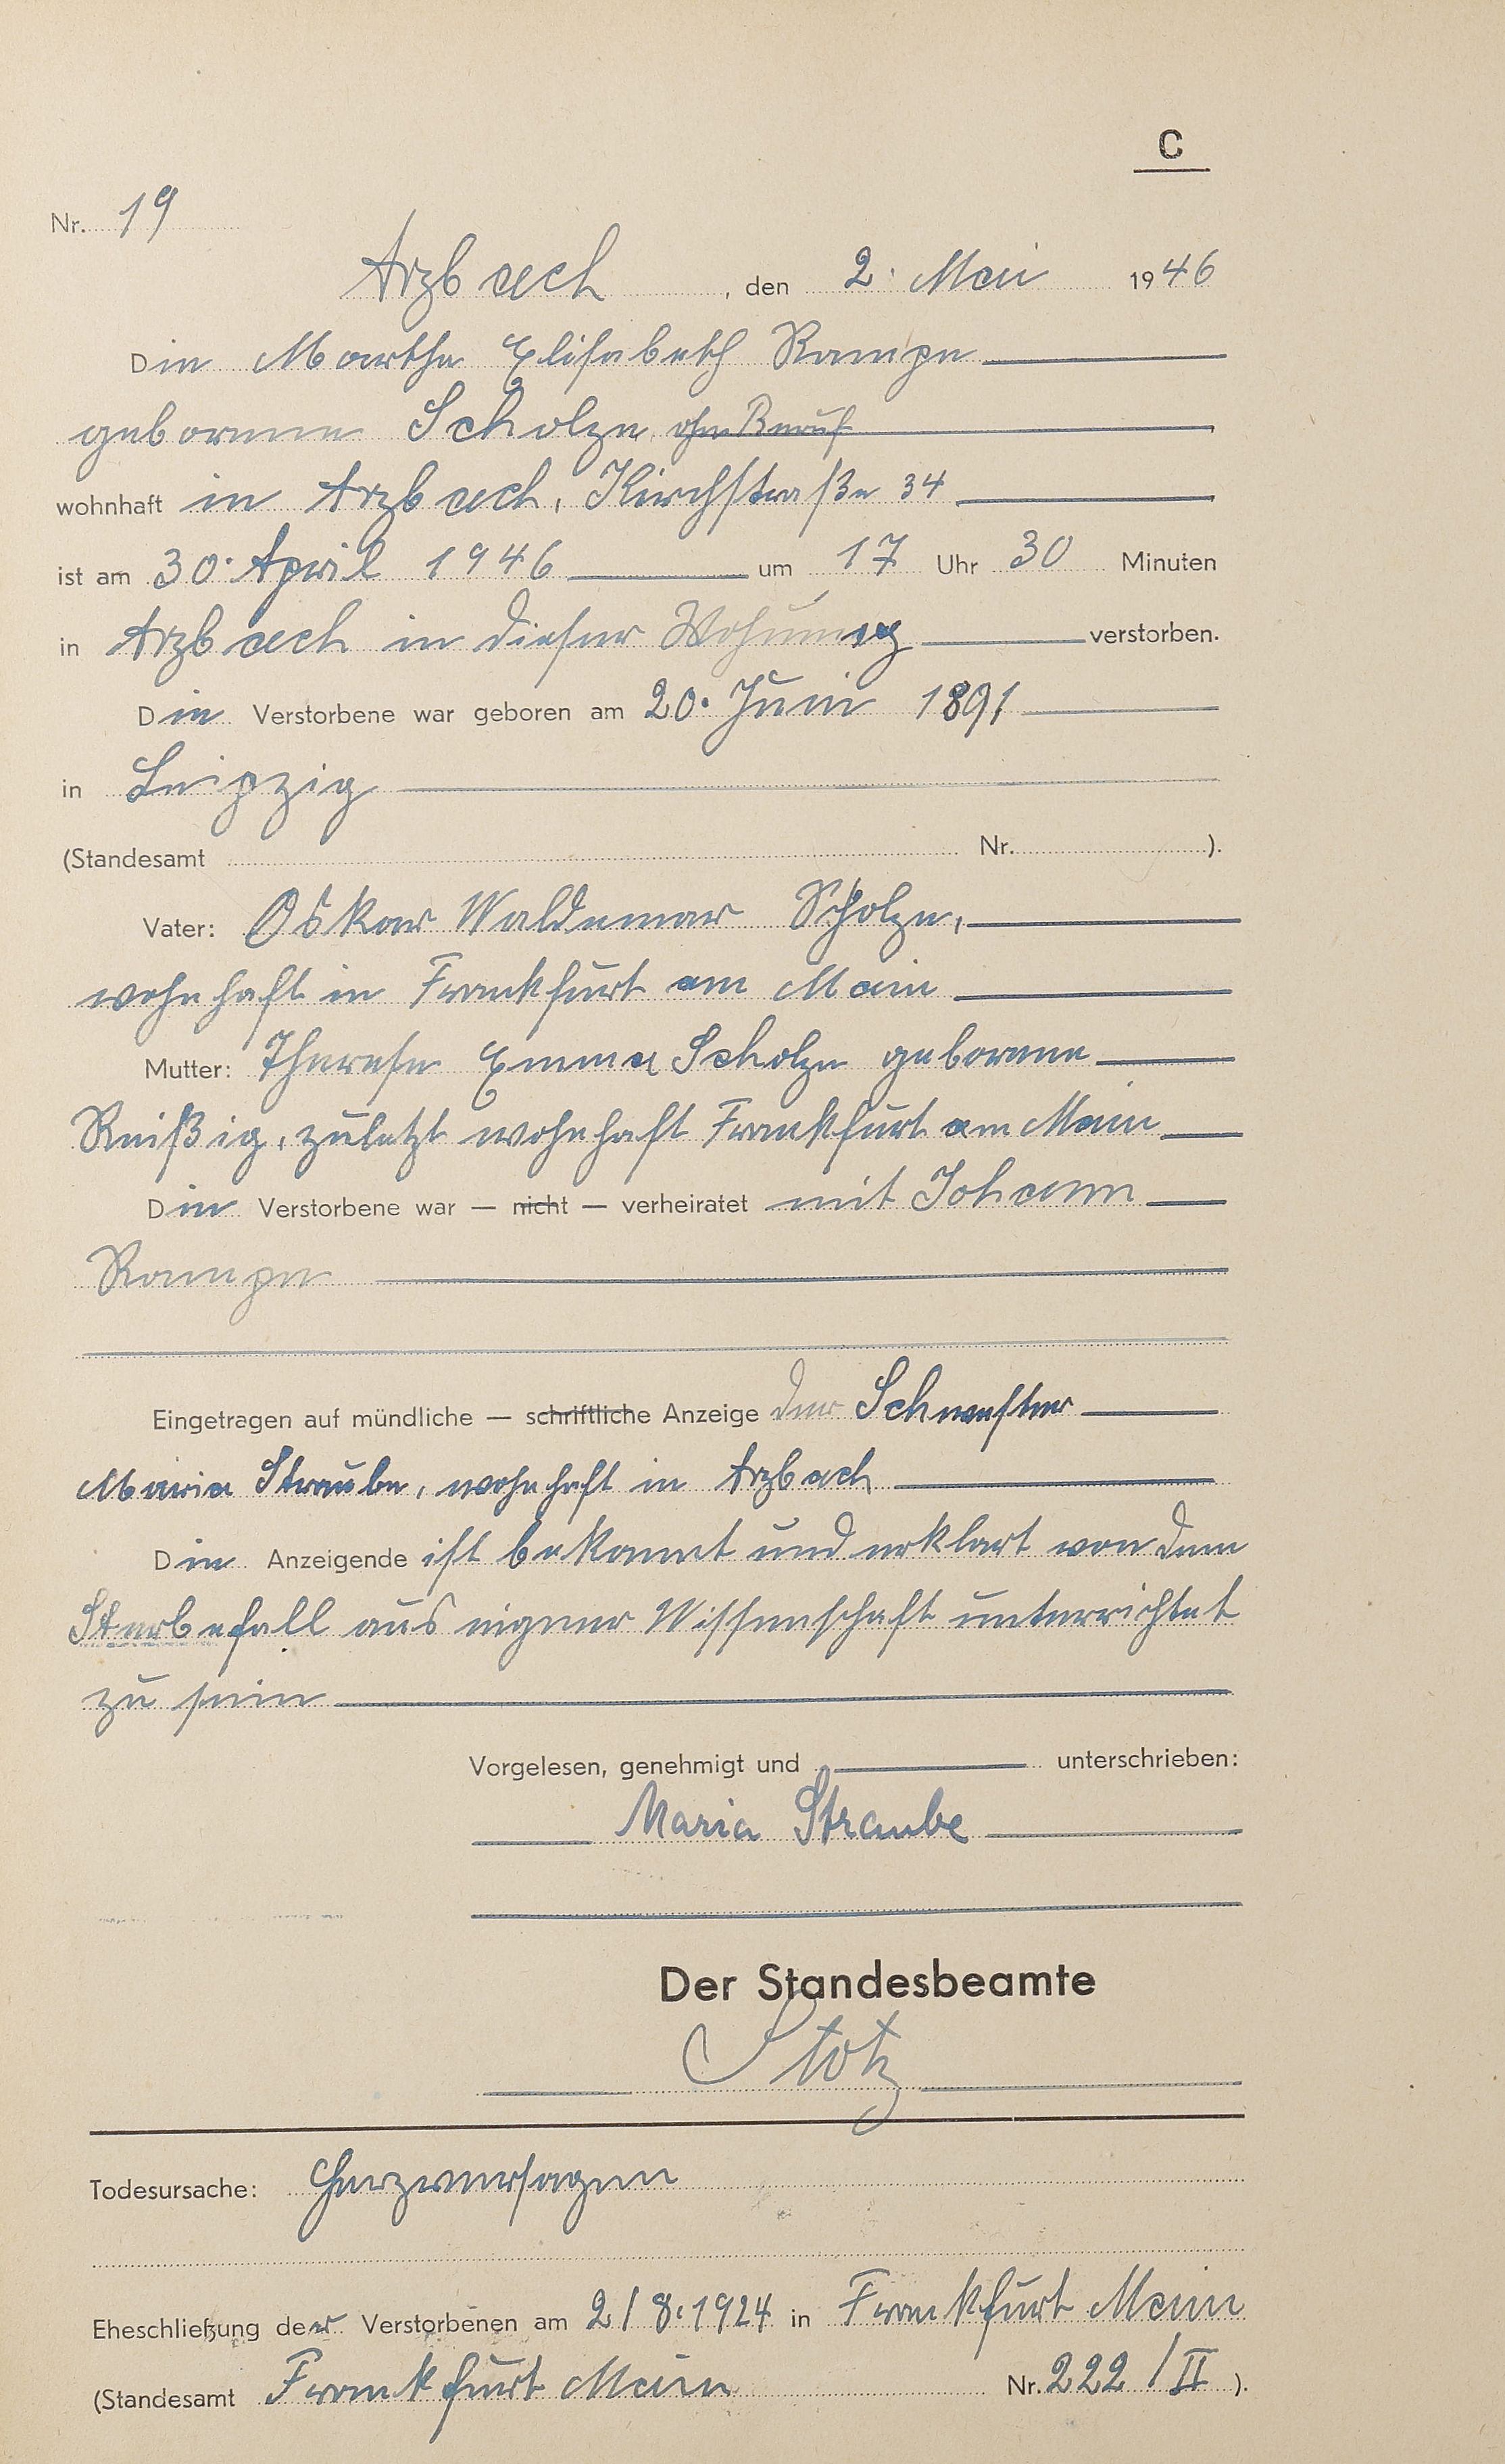 C
Nr. 19
Arzbach, den 2. Mai 1946
Die Martha Elisabeth Rampe
geborene Scholze, ohne Beruf
wohnhaft in Arzbach, Kirchstraße 34
ist am 30. April 1946 um 17 Uhr 30 Minuten
in Arzbach in dieser Wohnung verstorben.
Die Verstorbene war geboren am 20. Juni 1891
in Leipzig
(Standesamt Nr. ).
Vater: Oskar Waldemar Scholze,
wohnhaft in Frankfurt am Main
Mutter: Therese Emma Scholze geborene
Reißig, zuletzt wohnhaft Frankfurt am Main
Die Verstorbene war — nicht — verheiratet mit Johann
Rampe
Eingetragen auf mündliche — schriftliche Anzeige der Schwester
Maria Straube, wohnhaft in Arzbach
Die Anzeigende ist bekannt und erklart von dem
Sterbefall aus eigener Wissenschaft unterrichtet
zu sein
Vorgelesen, genehmigt und unterschrieben:
Maria Straube
Der Standesbeamte
Stotz
Todesursache: Herzversagen
Eheschließung der Verstorbenen am 2/8.1924 in Frankfurt Main
(Standesamt Frankfurt Main Nr. 222/II ).